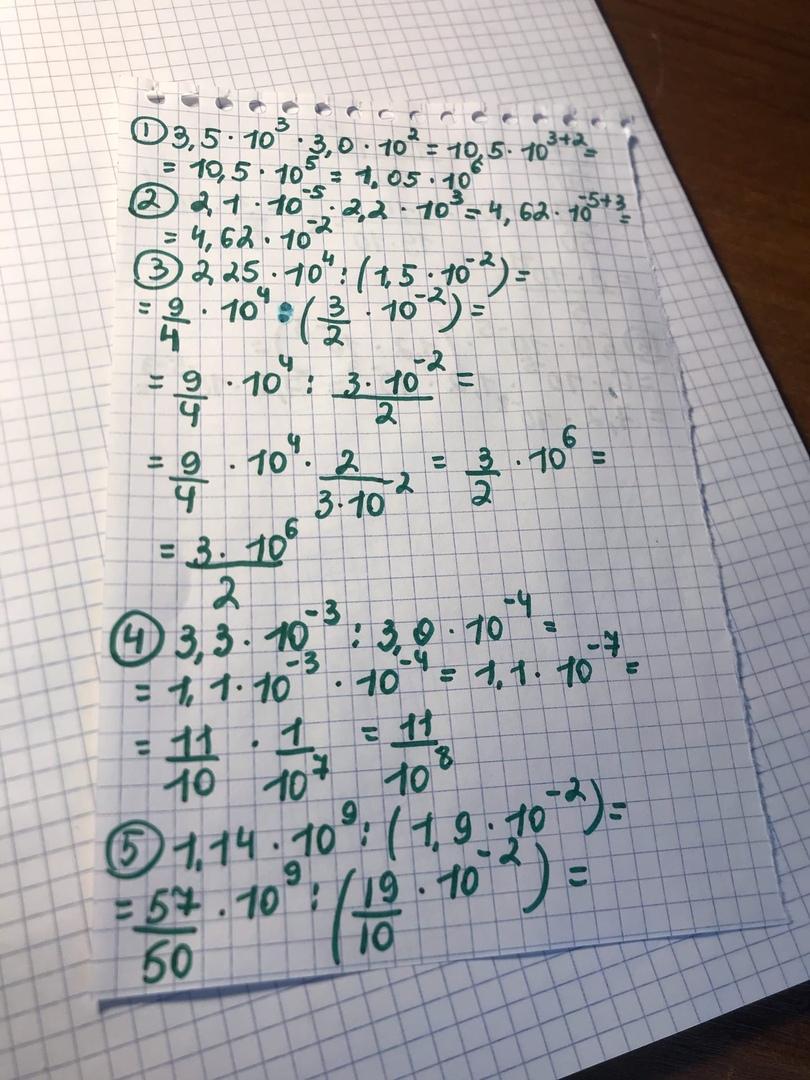 ① 3,5 · 10³ · 3,0 · 10² = 10,5 · 10³⁺² =
= 10,5 · 10⁵ = 1,05 · 10⁶
② 2,1 · 10⁻⁵ · 2,2 · 10³ = 4,62 · 10⁻⁵⁺³ =
= 4,62 · 10⁻²
③ 2,25 · 10⁴ : (1,5 · 10⁻²) =
= 9/4 · 10⁴ : (3/2 · 10⁻²) =
= 9/4 · 10⁴ : (3 · 10⁻²)/2 =
= 9/4 · 10⁴ · 2/(3 · 10⁻²) = 3/2 · 10⁶ =
= (3 · 10⁶)/2
④ 3,3 · 10⁻³ : 3,0 · 10⁻⁴ =
= 1,1 · 10⁻³ · 10⁻⁴ = 1,1 · 10⁻⁷ =
= 11/10 · 1/10⁷ = 11/10⁸
⑤ 1,14 · 10⁹ : (1,9 · 10⁻²) =
= 57/50 · 10⁹ : (19/10 · 10⁻²) =